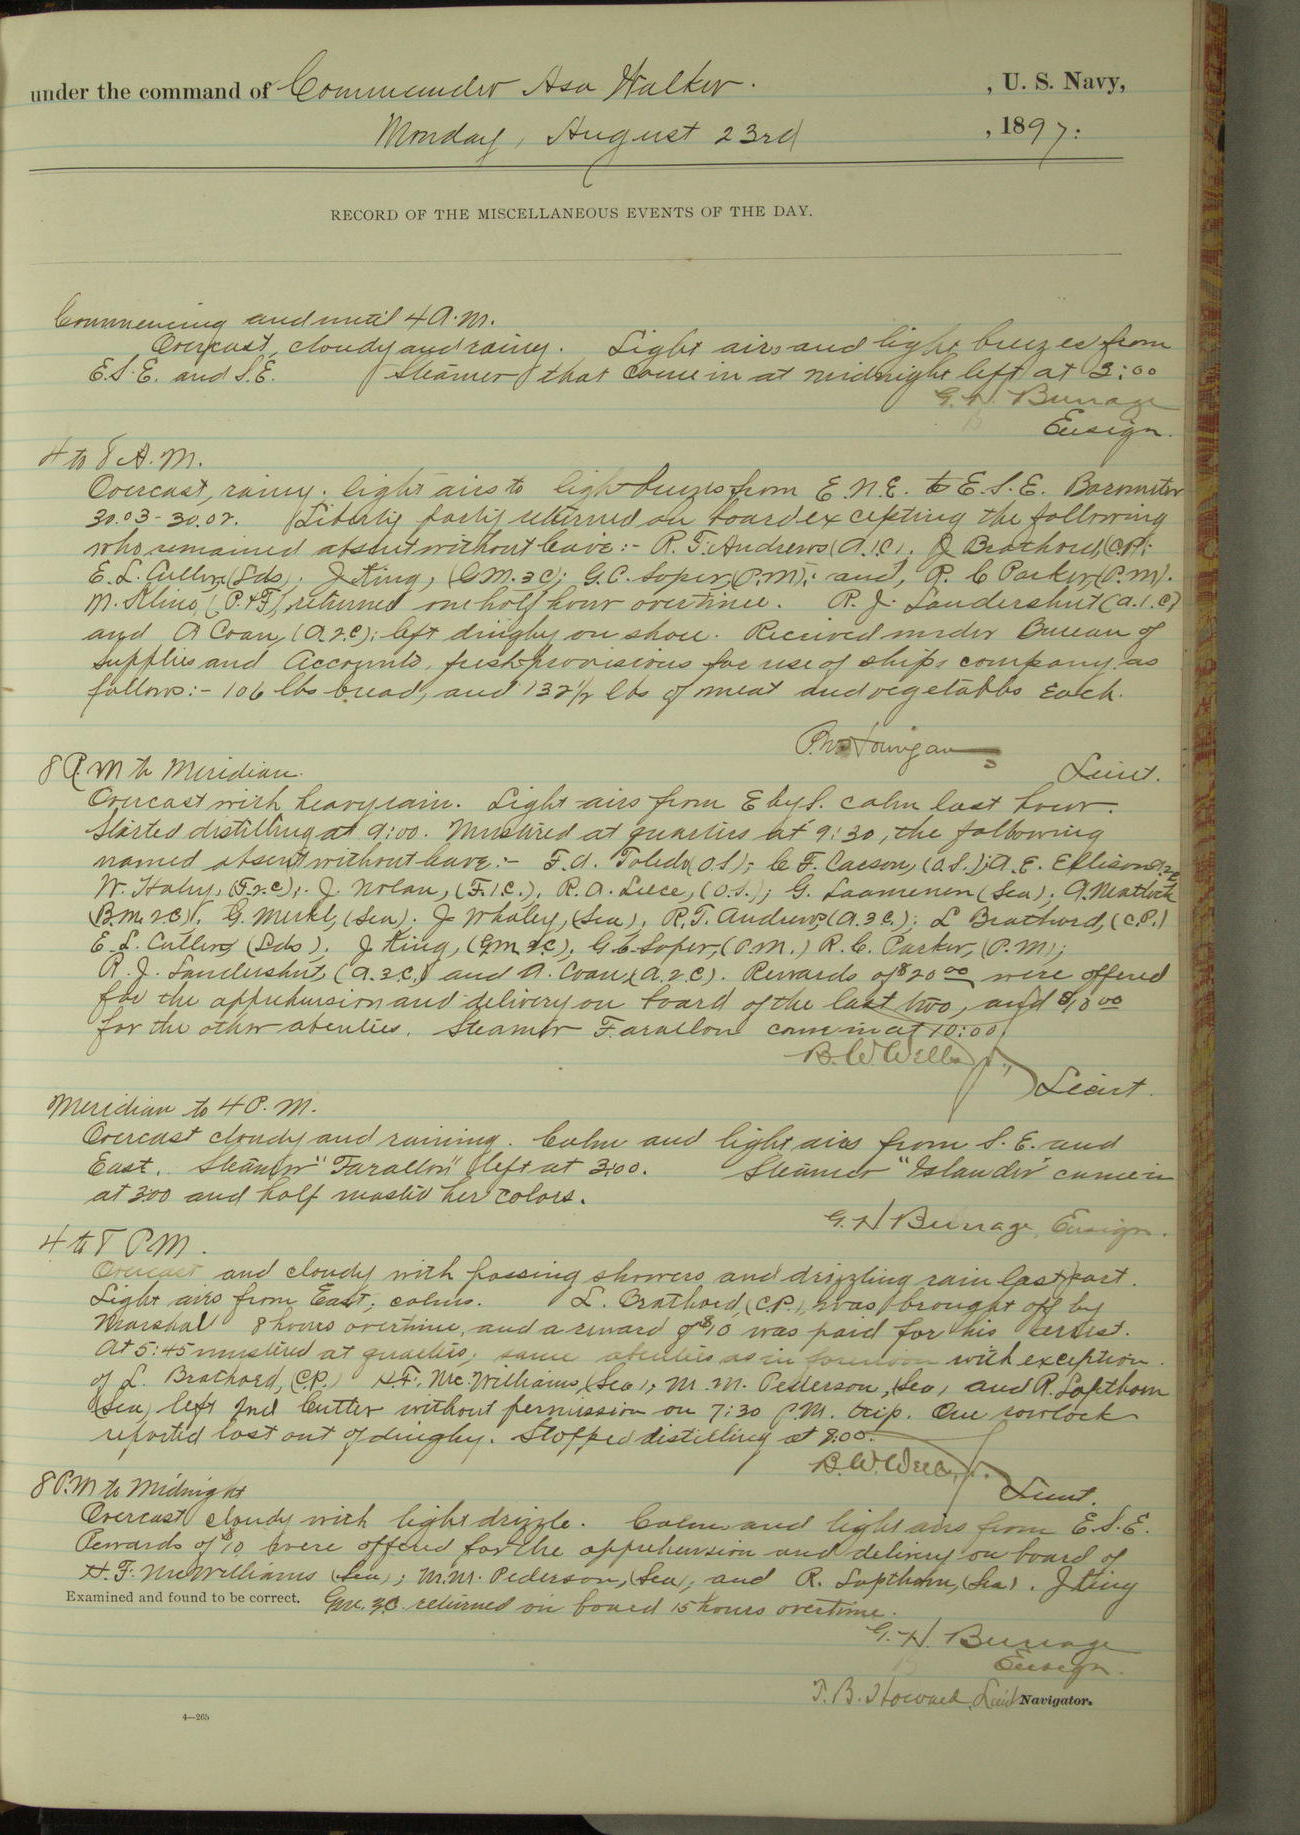 under the command of Commander Asa Walker. , U. S. Navy,
Monday, August 23rd , 1897.
RECORD OF THE MISCELLANEOUS EVENTS OF THE DAY.
Commencing and until 4 A.M.
Overcast, cloudy and rainy. Light airs and light breezes from
E.S.E. and S.E. Steamer that came in at midnight left at 3:00
G. N. Burrage
Ensign.
4 to 8 A.M.
Overcast, rainy; light airs to light breezes from E.N.E. to E.S.E. Barometer
30.03-30.02. Liberty party returned on board excepting the following
who remained absent without leave:- R. T. Andrews (A.1C), J Brathord, (C.P.);
E. L. Cullers, (Lds); J King, (G.M. 3C); G.C. Soper, (P.M); and, R. C Parker, (P.M).
M. Kline, (P.&F), returned one half hour overtime. R. J. Laudershut (A.1.C)
and A Coan, (A.2.C); left dinghy on shore. Received under Bureau of
Supplies and Accounts, fresh provisions for use of ships company as
follows:- 106 lbs bread, and 132 1/2 lbs of meat and vegetables each.
Lieut.
8 P.M to Meridian.
Overcast with heavy rain. Light airs from E by S. calm last hour.
Started distilling at 9:00. Mustered at quarters at 9:30, the following
named absent without leave:- F. A. Toledo (O.S); C. F. Carson, (O.S.); A. E. Ellison
W. Haley, (F.2.C); J. Nolan, (F.1C.), R. A. Leece, (O.S.); G. Laamenen (Sea); A. Matlock
(B.M. 2C), G. Merkl, (Sea). J Whaley, (Sea), R. T. Andrews, (A.3C.); L Brathord, (C.P.)
E. L. Cullers (Lds), J King, (G.M 3.C), G. C. Soper, (P.M.) R. C. Parker, (P.M);
R. J. Laudershut, (A.3.C.) and A. Coan, (A.2C). Rewards of $20 00 were offered
for the apprehension and delivery on board of the last two, and $10 00
for the other abentees. Steamer Farallon came in at 10:00.
B. W. Wells Jr.,
Lieut.
Meridian to 4 P.M.
Overcast cloudy and raining. Calm and light airs from S.E. and
East. Steamer "Farallon" left at 3:00. Steamer "Islander" came in
at 3:00 and half masted her colors.
G. N Burrage, Ensign.
4 to 8 P M.
Overcast and cloudy with passing showers and drizzling rain last part.
Light airs from East; calms. L. Brathord, (C.P.), was brought off by
Marshal 8 hours overtime, and a reward of $10 was paid for his arrest.
At 5:45 mustered at quarters; same abentees as in forenoon with exception
of L. Brathord, (C.P.) H.F. McWilliams, (Sea); M. M. Pederson, (Sea, and R. Lapthorn
(Sea) left 2nd Cutter without permission on 7:30 P.M. trip. One rowlock
reported lost out of dinghy. Stopped distilling at 8:00.
B. W. Wells, Jr.
Lieut.
8 P.M to Midnight
Overcast cloudy with light drizzle. Calm and light airs from E.S.E.
Rewards of $10 were offered for the apprehension and delivery on board of
H. F. McWilliams (Sea); M.M. Pederson, (Sea); and R. Lapthorn, (Sea). J King
Examined and found to be correct. G.M. 3C. returned on board 15 hours overtime.
G. N. Burrage
Ensign.
T. B. Howard, Lieut Navigator.
4—265